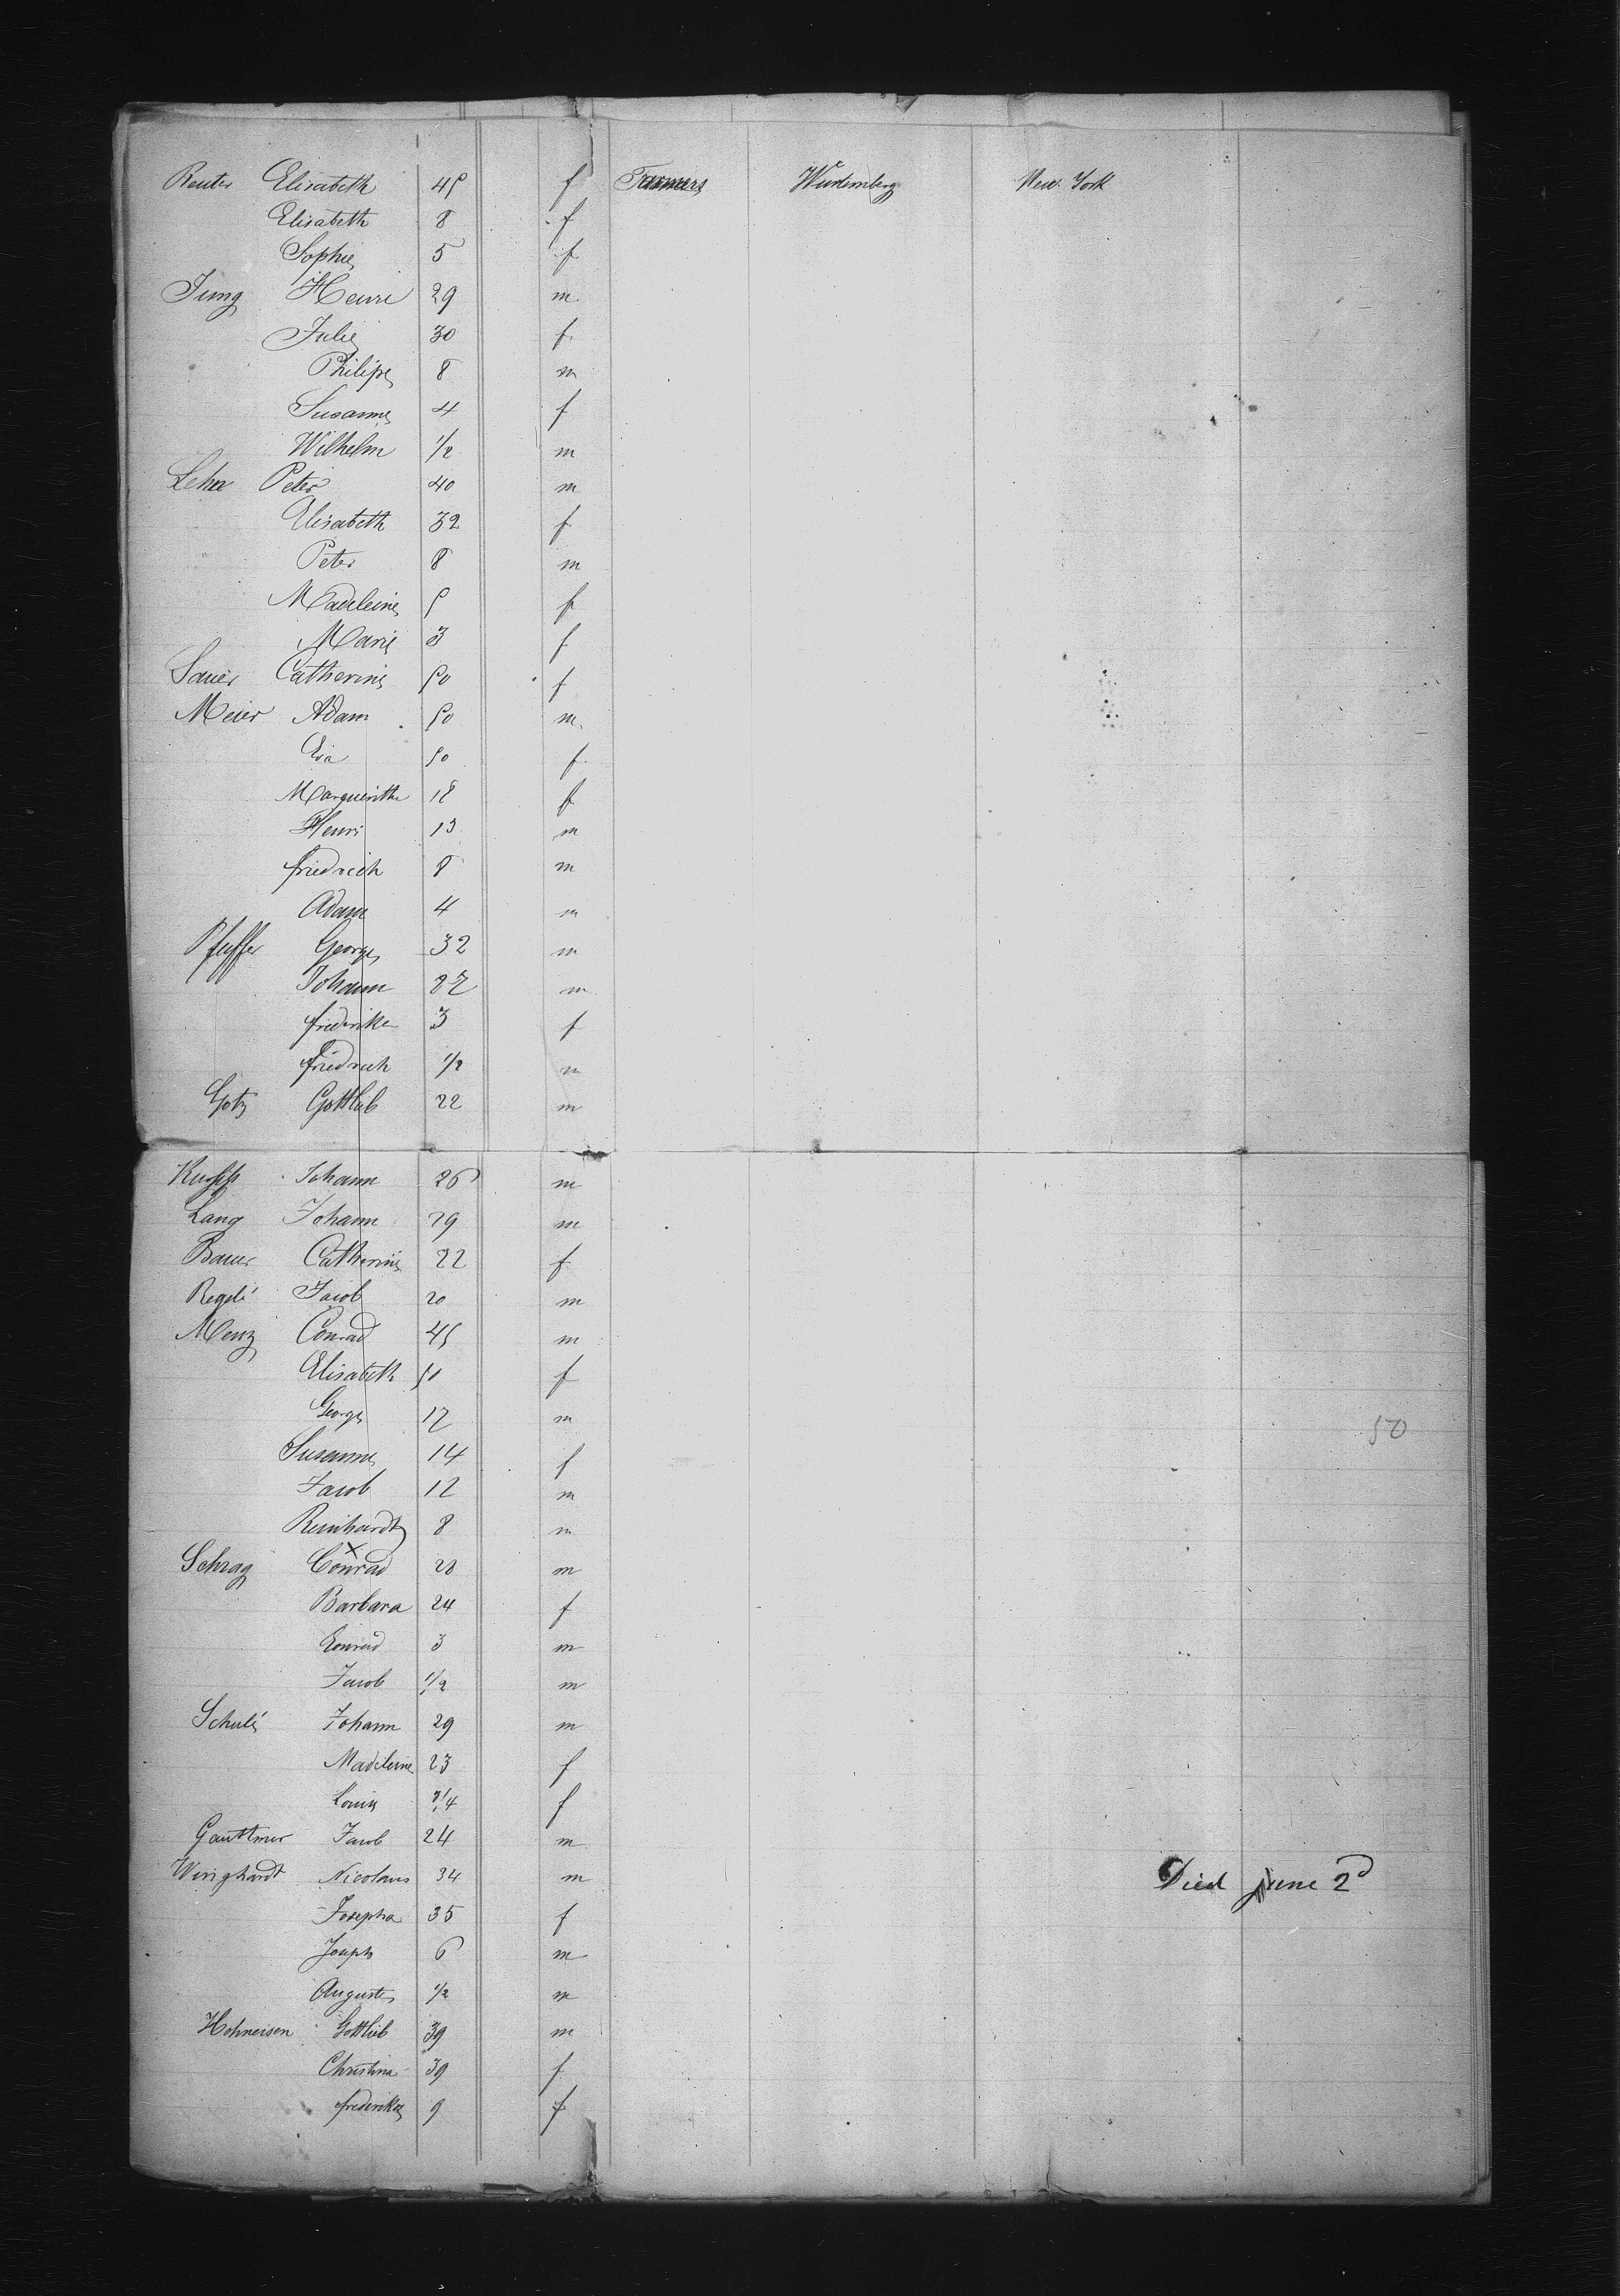 Reuter Elisabeth 45 f Farmers Wurtemberg New York
Elisabeth 8 f
Sophie 5 f
Jung Henri 29 m
Julie 30 f
Philipe 8 m
Susanne 4 f
Wilhelm 1/2 m
Lehr Peter 40 m
Elisabeth 32 f
Peter 8 m
Madeleine 5 f
Marie 3 f
Sauer Catherine 50 f
Meier Adam 50 m
Eva 50 f
Marguerithe 18 f
Henri 13 m
friedrich 8 m
Adam 4 m
Pfeffer George 32 m
Johann 27 m
friderike 3 f
friedrich 1/2 m
Gotz Gottlieb 22 m
Johann 26 m
Lang Johann 29 m
Bauer Catherine 22 f
Regele Jacob 20 m
Menz Conrad 45 m
Elisabeth 50 f
George 17 m
50
Susanne 14 f
Jacob 12 m
Reinhardt 8 m
Schrag Conrad 28 m
x
Barbara 24 f
Conrad 3 m
Jacob 1/2 m
Schulé Johann 29 m
Madeleine 23 f
Louise 3/4 f
Jacob 24 m
Nicolaus 34 m Died june 2d
Josepha 35 f
Joseph 6 m
Auguste 1/2 m
Hohneisen Gottlieb 39 m
Christina 39 f
frederike 9 f